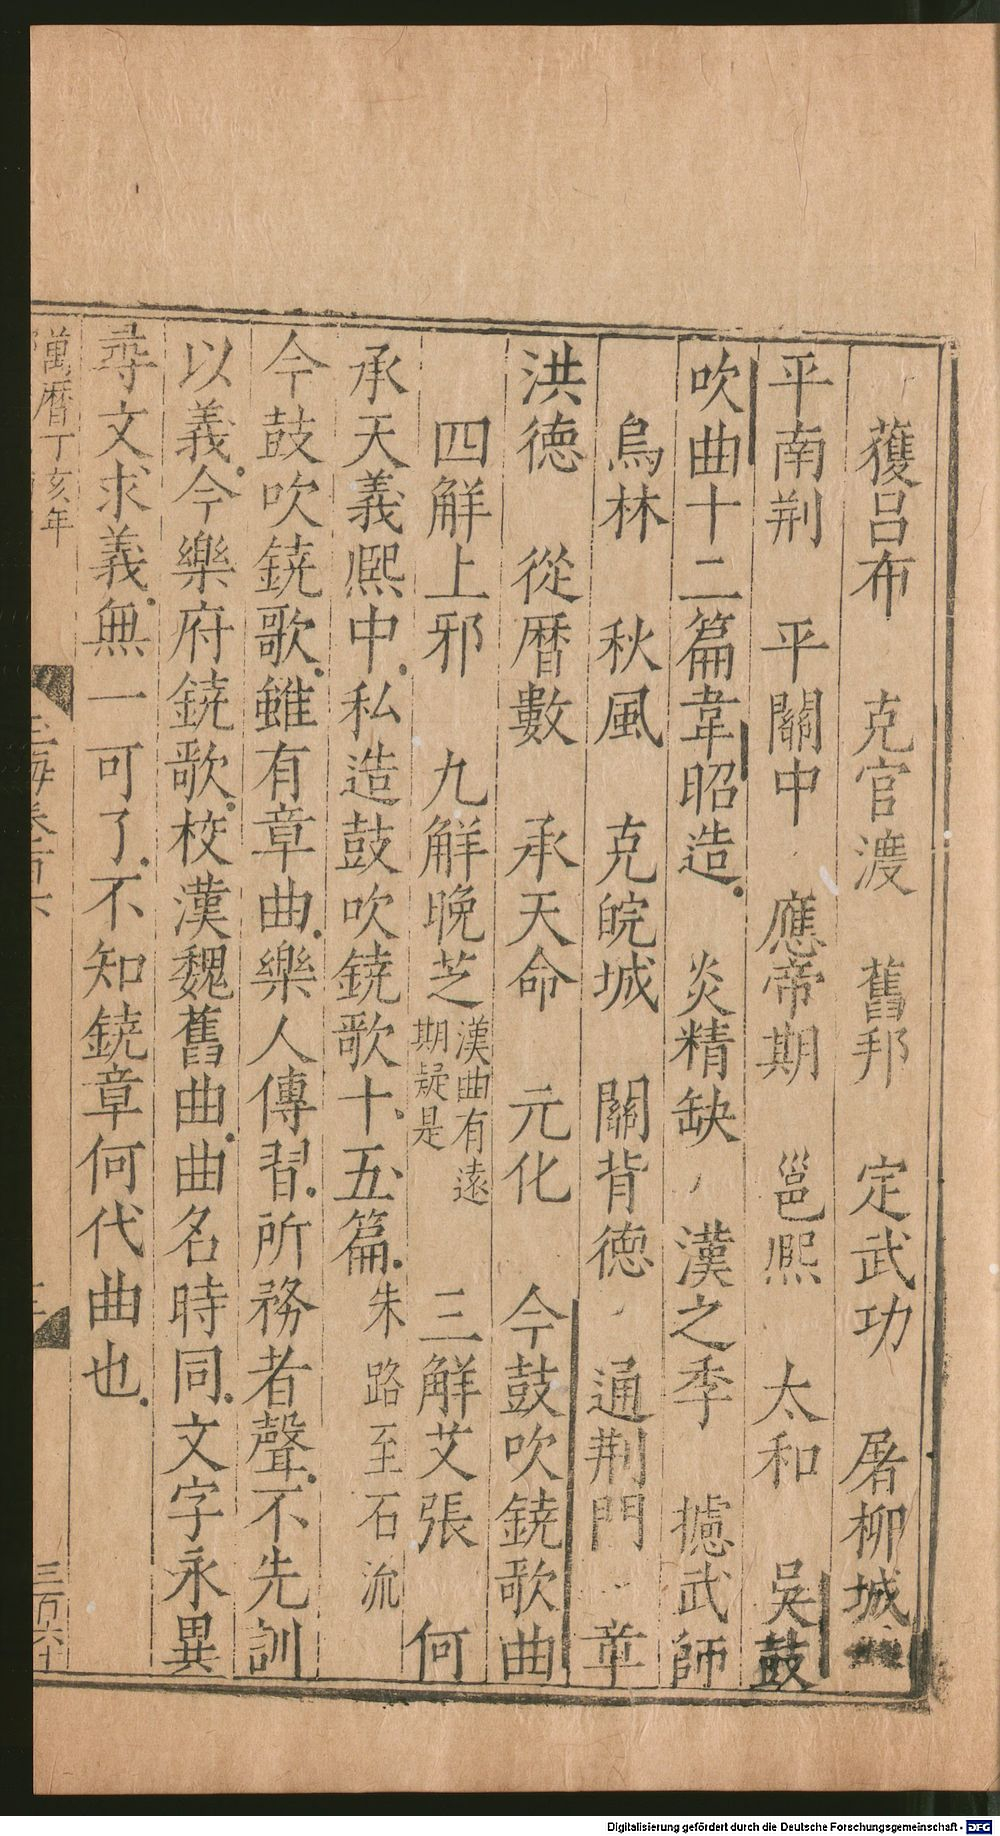 獲呂布　克官渡　舊邦　定武功　屠柳城
平南荆　平關中　應帝期　邕熈　太和　吳鼓
吹曲十二篇韋昭造　炎精缺　漢之季　攄武師
烏林　秋風　克皖城　關背德　通荆門　章
洪德　從曆數　承天命　元化　今鼓吹鐃歌曲
四解上邪　九解晚芝漢曲有遠期疑是　三解艾張　何
承天義熈中私造鼓吹鐃歌十五篇朱路至石流
今鼓吹鐃歌雖有章曲樂人傳習所務者聲不先訓
以義今樂府鐃歌校漢魏舊曲曲名時同文字永異
尋文求義無一可了不知鐃章何代曲也
萬曆丁亥年
玉海卷百六
三百六十
Digitalisierung gefördert durch die Deutsche Forschungsgemeinschaft - DFG